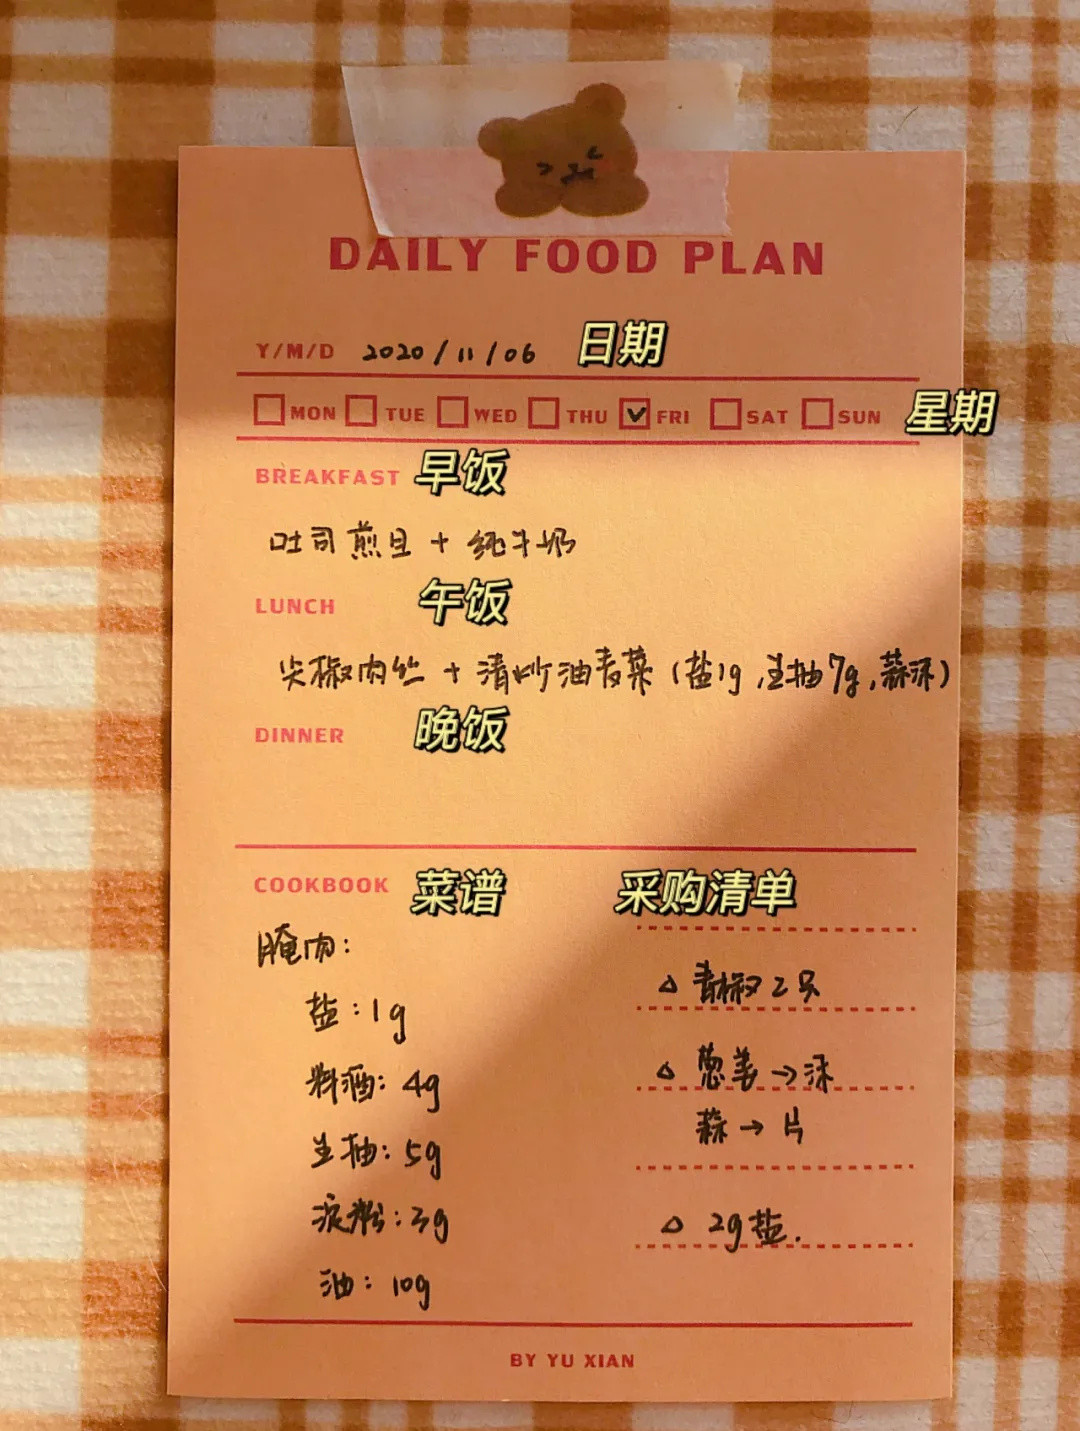 DAILY FOOD PLAN
Y/M/D 2020/11/06 日期
MON TUE WED THU FRI SAT SUN 星期
BREAKFAST 早饭
吐司煎旦 + 纯牛奶
LUNCH 午饭
尖椒肉丝 + 清炒油麦菜 (盐1g, 生抽7g, 蒜沫)
DINNER 晚饭
COOKBOOK 菜谱
腌肉:
盐: 1g
料酒: 4g
生抽: 5g
淀粉: 3g
油: 10g
采购清单
△ 青椒2只
△ 葱姜→沫
蒜→片
△ 2g盐.
BY YU XIAN